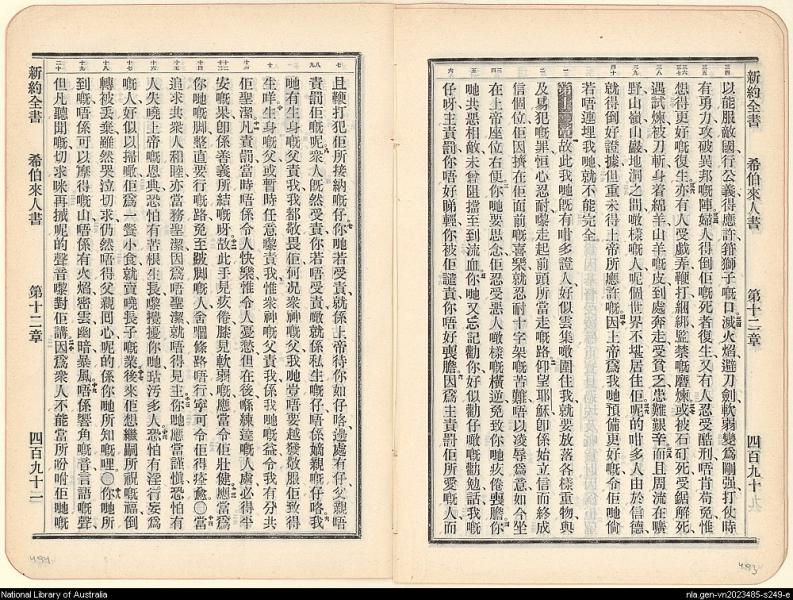 新約全書 希伯來人書 第十二章 四百九十
以能服敵國行公義得應許箝獅子嘅口滅火焰避刀劍軟弱變爲剛强打仗時
有勇力攻破異邦嘅陣婦人得倒佢嘅死者復生又有人忍受酷刑唔肯苟免惟
想得更好嘅復生亦有人受戲弄鞭打綑綁監禁嘅磨煉或被石矴死受鋸解死
遇試煉被刀斬身着綿羊山羊嘅皮到處奔走受貧乏患難艱辛而且周流在曠
野山嶺山巖地洞之間噉樣嘅人呢個世界不堪居住佢呢的咁多人由於信德
就得倒好證據但重未得上帝所應許嘅因爲上帝爲我哋預備更好嘅令佢哋倘
若唔連埋我哋就不能完全
第十二章故此我哋既有咁多證人好似雲集噉圍住我就要放落各樣重物與
及易犯嘅罪恒心忍耐嚟走起前頭所當走嘅路仰望耶穌卽係始立信而終成
信個位佢因擠在佢面前嘅喜樂就忍耐十字架嘅苦難唔以凌辱爲意如今坐
在上帝座位右便你哋要思念佢忍受惡人噉樣嘅橫逆免致你哋疲倦喪膽你
哋共惡相敵未曾阻擋至到流血你哋又忘記勸你好似勸仔嘅勸勉話我
仔呀主責罰你唔好睇輕你被佢譴責你唔好喪膽因爲主責罰佢所愛嘅人而
且鞭打犯佢所接納嘅仔你哋若受責就係上帝待你如仔咯邊處有仔父親唔
責罰佢嘅呢衆人既然受責你若唔受責嘅就係私生嘅仔唔係嫡親嘅仔咯我
哋有生身嘅父責我我都敬畏佢何况衆神嘅父我哋豈唔要越發敬服佢致得
生咩生身嘅父或暫時任意嚟責我惟衆神嘅父責我係我哋嘅益令我有分共
佢聖潔凡責罰當時唔係令人快樂惟令人憂愁但在後係練達嘅人處必得平
安嘅果卽係善義所結嘅呀故此手見疲倦膝見軟弱嘅應當令佢壯健應當爲
你哋嘅脚整直要行嘅路免至跛脚嘅人舍嗰條路唔行寧可令佢得痊愈〇當
追求共衆人和睦亦當務聖潔因爲唔聖潔就唔得見主你哋應當謹慎恐怕有
人失曉上帝嘅恩典恐怕有苦根生長嚟攪擾你哋玷汚多人恐怕有淫行妄爲
嘅人好似以掃噉佢爲一餐小食就賣曉長子嘅業後來佢想繼嗣所祝嘅福倒
轉被丟棄雖然哭泣切求仍然唔得父親回心呢的係你哋所知嘅哩〇你哋所
到嘅唔係可以摩得嘅山唔係有火焰密雲幽暗暴風唔係響角嘅音言語嘅聲
但凡聽聞嘅切求咪再摵呢的聲音嚟對佢講因爲衆人不能當所吩咐佢哋嘅
新約全書 希伯來人書 第十二章 四百九十二
484
483
National Library of Australia
nla.gen-vn2023485-s249-e